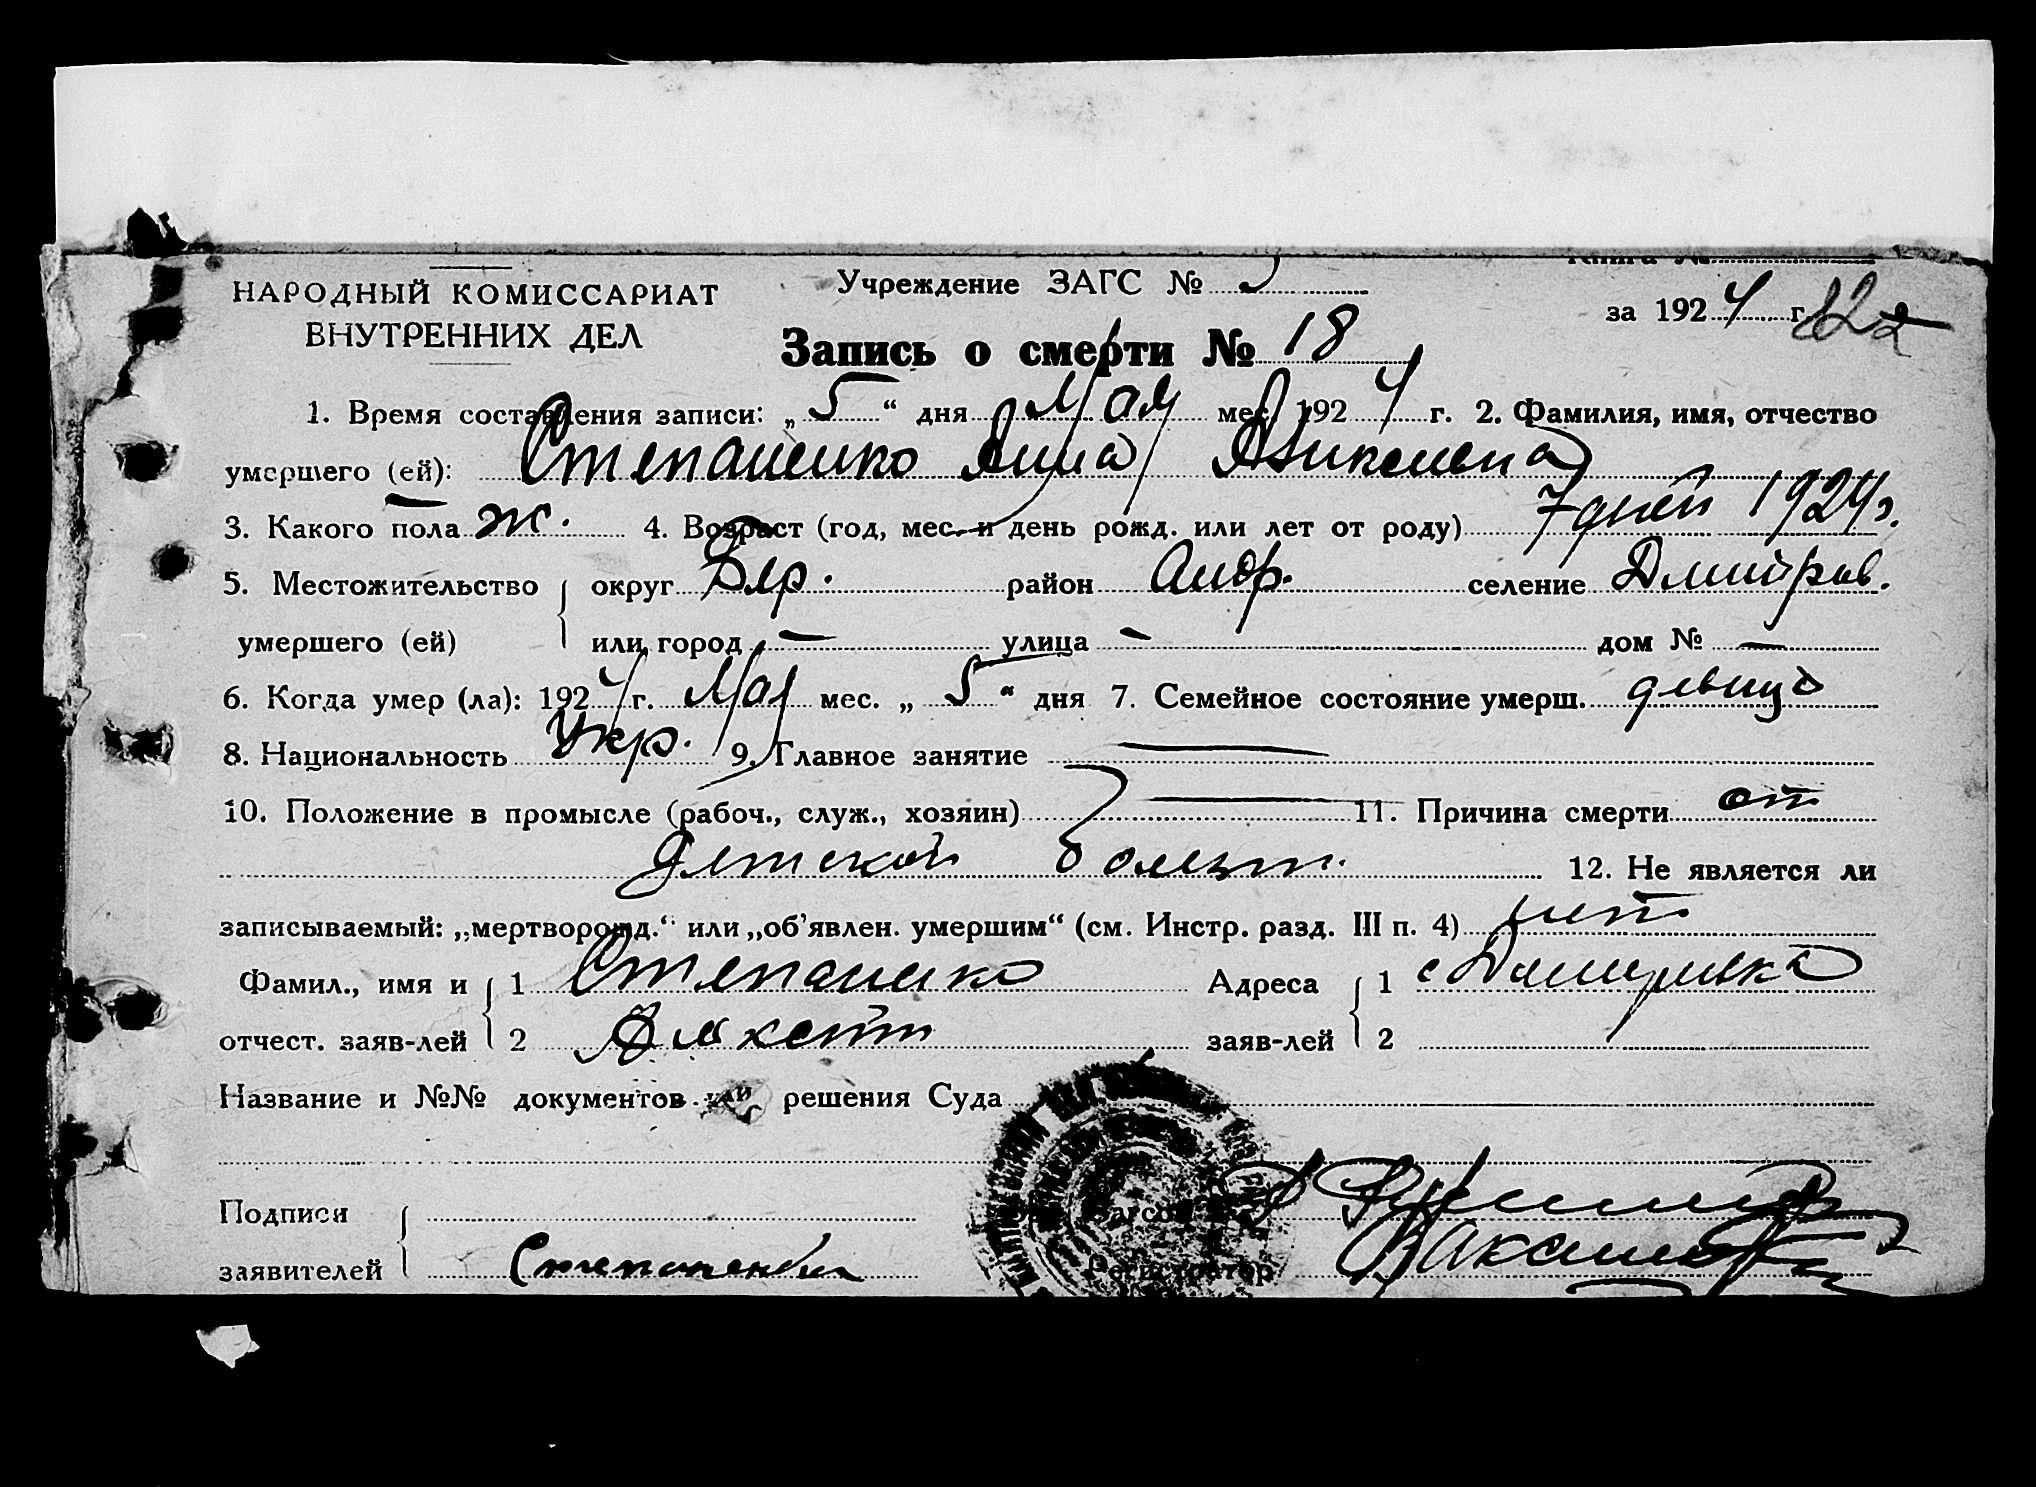 НАРОДНЫЙ КОМИССАРИАТ
ВНУТРЕННИХ ДЕЛ
Учреждение ЗАГС №
за 1924 г.
Запись о смерти № 18
1. Время составления записи: „5“ дня Мая мес. 1924 г. 2. Фамилия, имя, отчество
умершего (ей): Степаненко Анна
3. Какого пола ж. 4. Возраст (год, мес. и день рожд. или лет от роду) 7 дней 1924 г.
5. Местожительство округ район селение
умершего (ей) или город — улица — дом № —
6. Когда умер (ла): 1924 г. Мая мес. „5“ дня 7. Семейное состояние умерш. девица
8. Национальность Укр. 9. Главное занятие —
10. Положение в промысле (рабоч., служ., хозяин) — 11. Причина смерти от
детской 12. Не является ли
записываемый: „мертворожд.“ или „об'явлен. умершим“ (см. Инстр. разд. III п. 4) нет
Фамил., имя и 1 Степаненко Адреса 1 с
отчест. заяв-лей 2 заяв-лей 2
Название и №№ документов или решения Суда
Подписи
заявителей
Регистратор